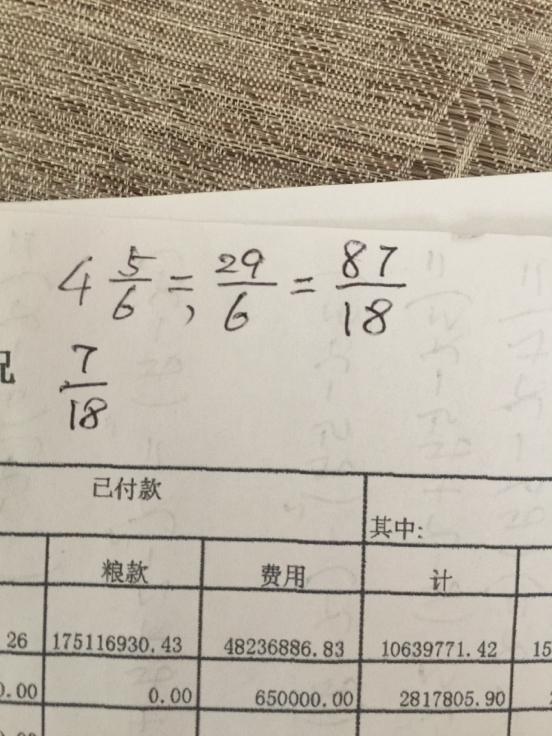 4 5/6 =, 29/6 = 87/18
7/18
已付款
其中:
粮款 费用 计
26 175116930.43 48236886.83 10639771.42 15
0.00 0.00 650000.00 2817805.90